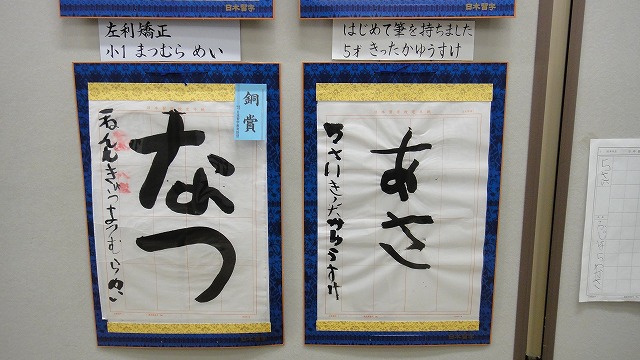 日本習字
日本習字
左利矯正
小1 まつむら めい
はじめて筆を持ちました
5才 きったかゆうすけ
銅賞
なつ
まつむらめい
あさ
5さい きったかゆうすけ
日本習字
日本習字